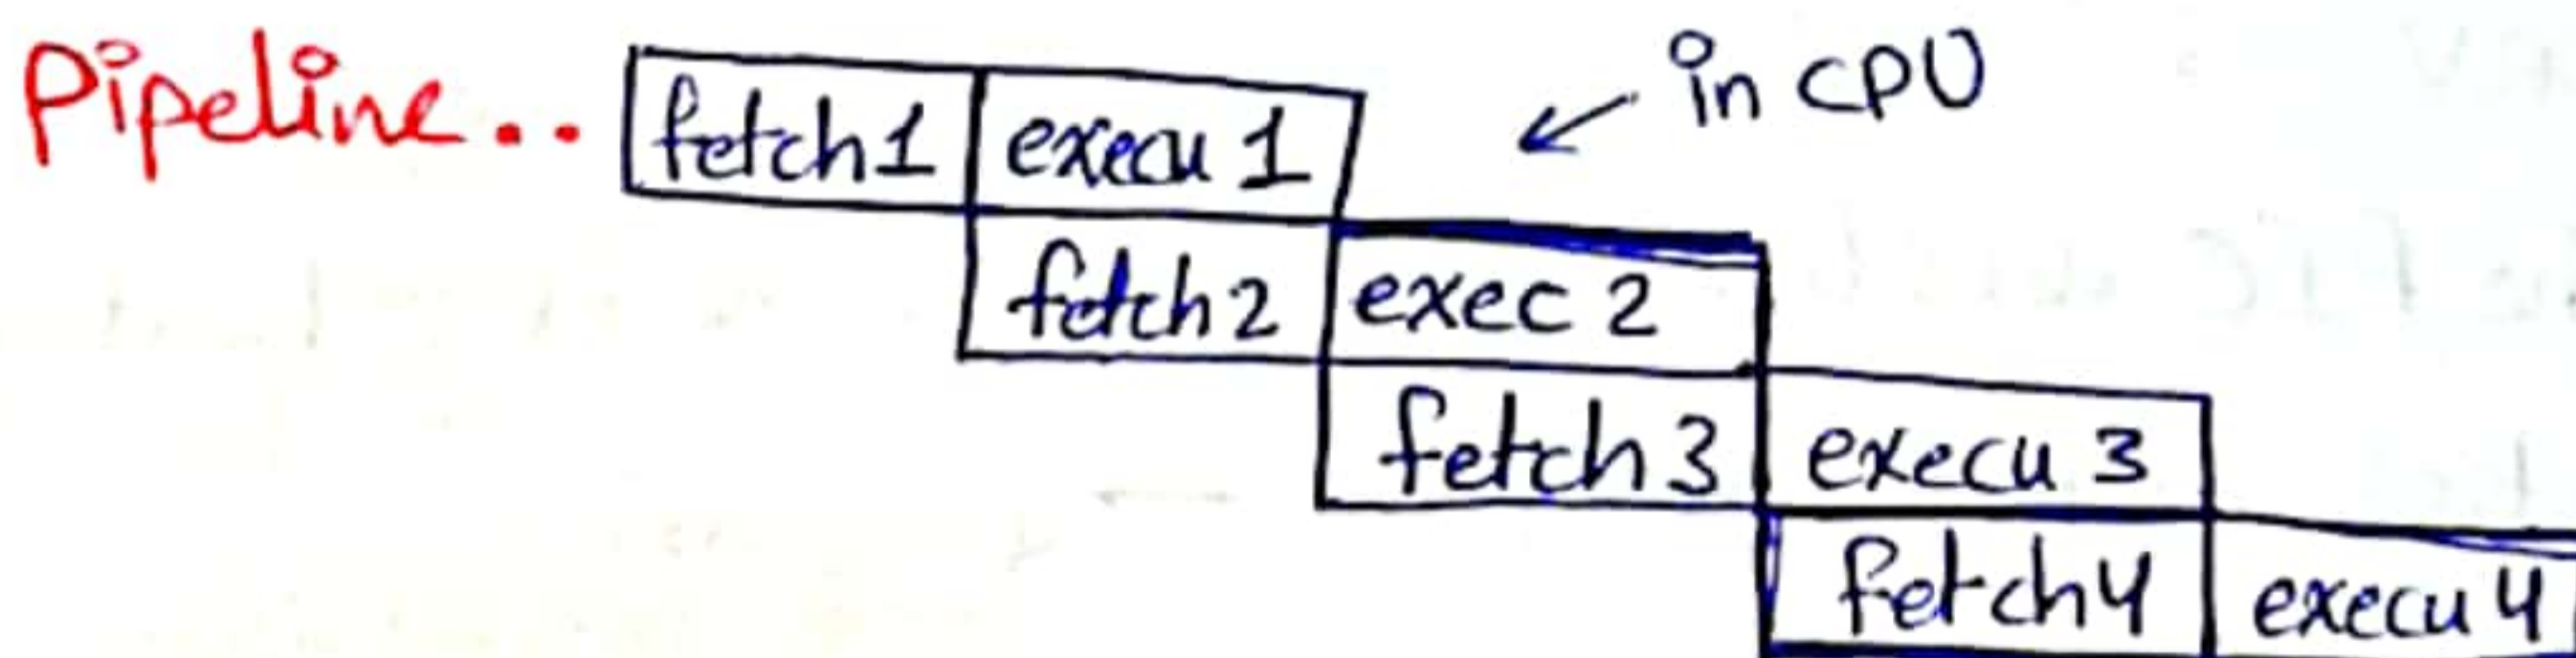 Pipeline.. fetch1 execu 1 in CPU
fetch 2 exec 2
fetch 3 execu 3
fetch4 execu 4